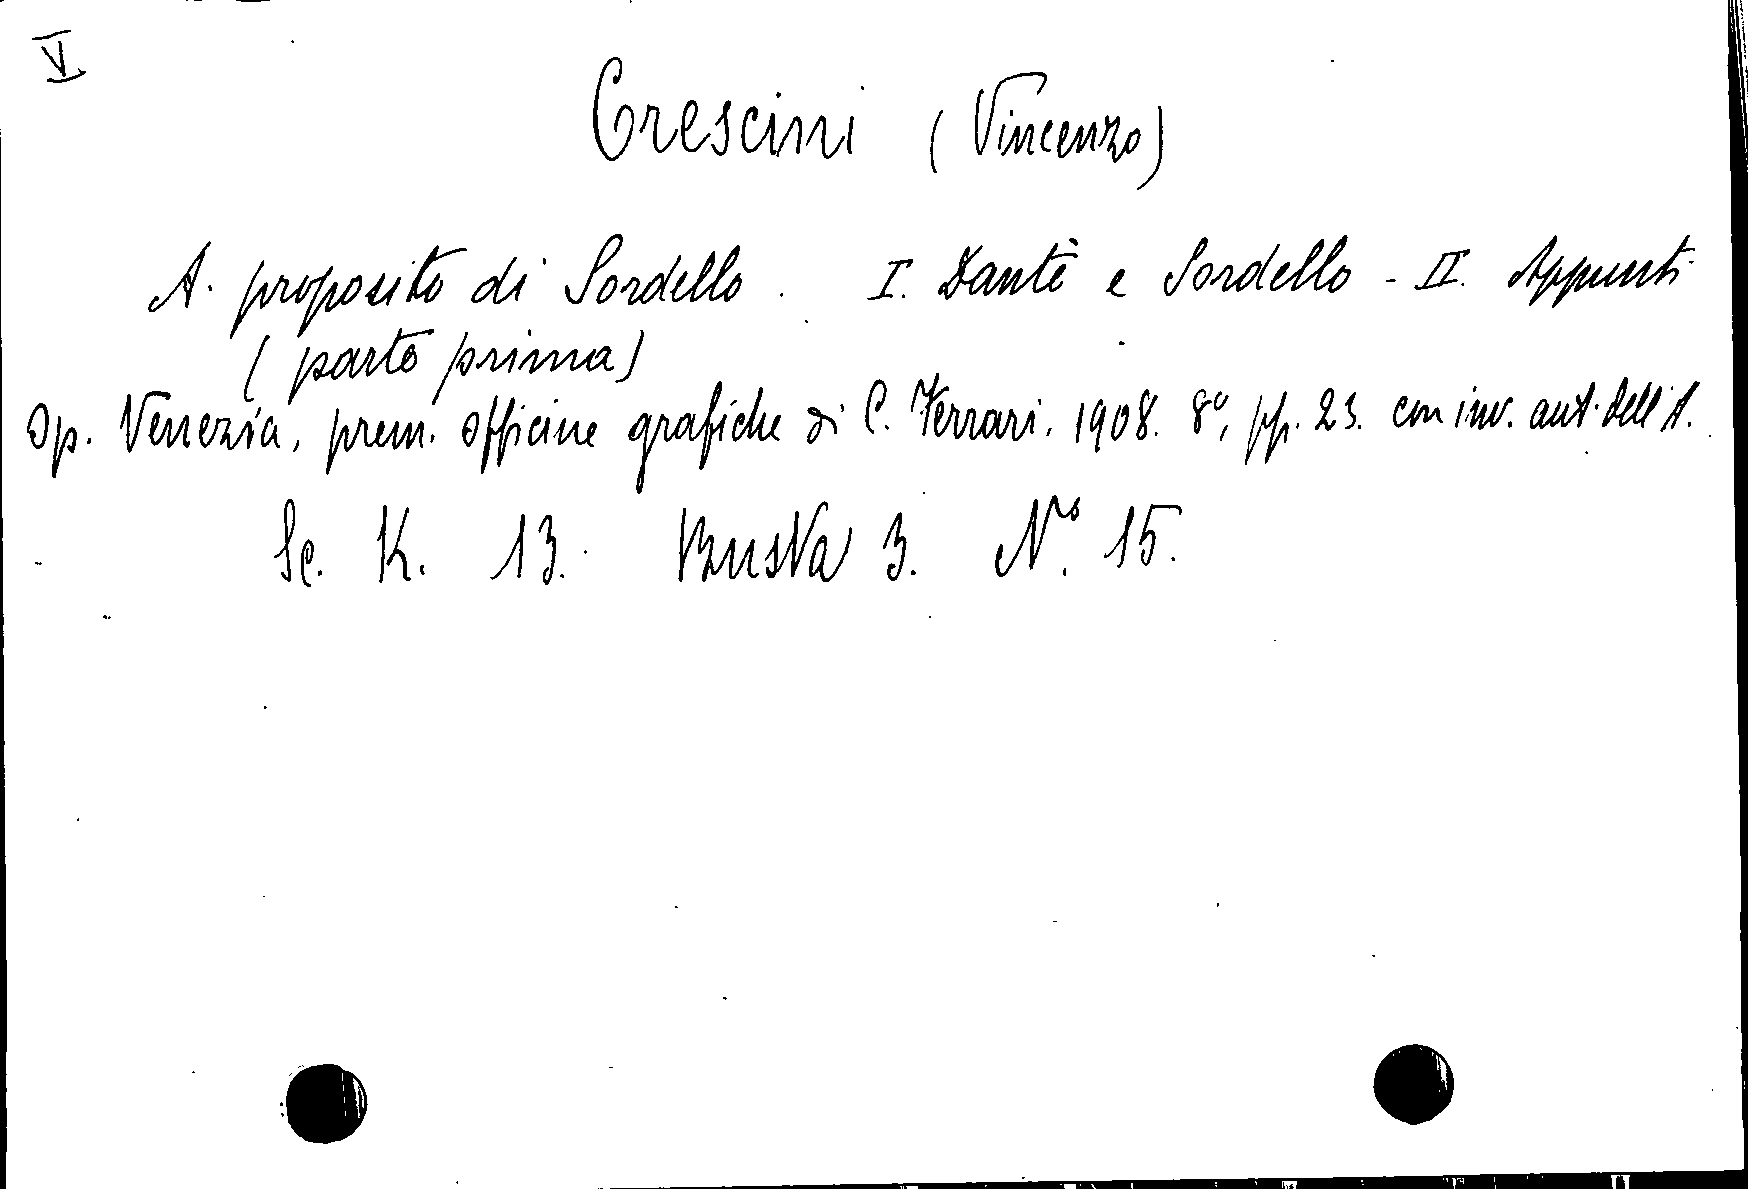 V
Crescini (Vincenzo)
A proposito di Sordello. I. Dante e Sordello - II. Appunti
(parte prima)
Op. Venezia, prem. officine grafiche di C. Ferrari. 1908. 8°, pp. 23. con inv. aut. dell'A.
Sc. K. 13. Busta 3. N.° 15.